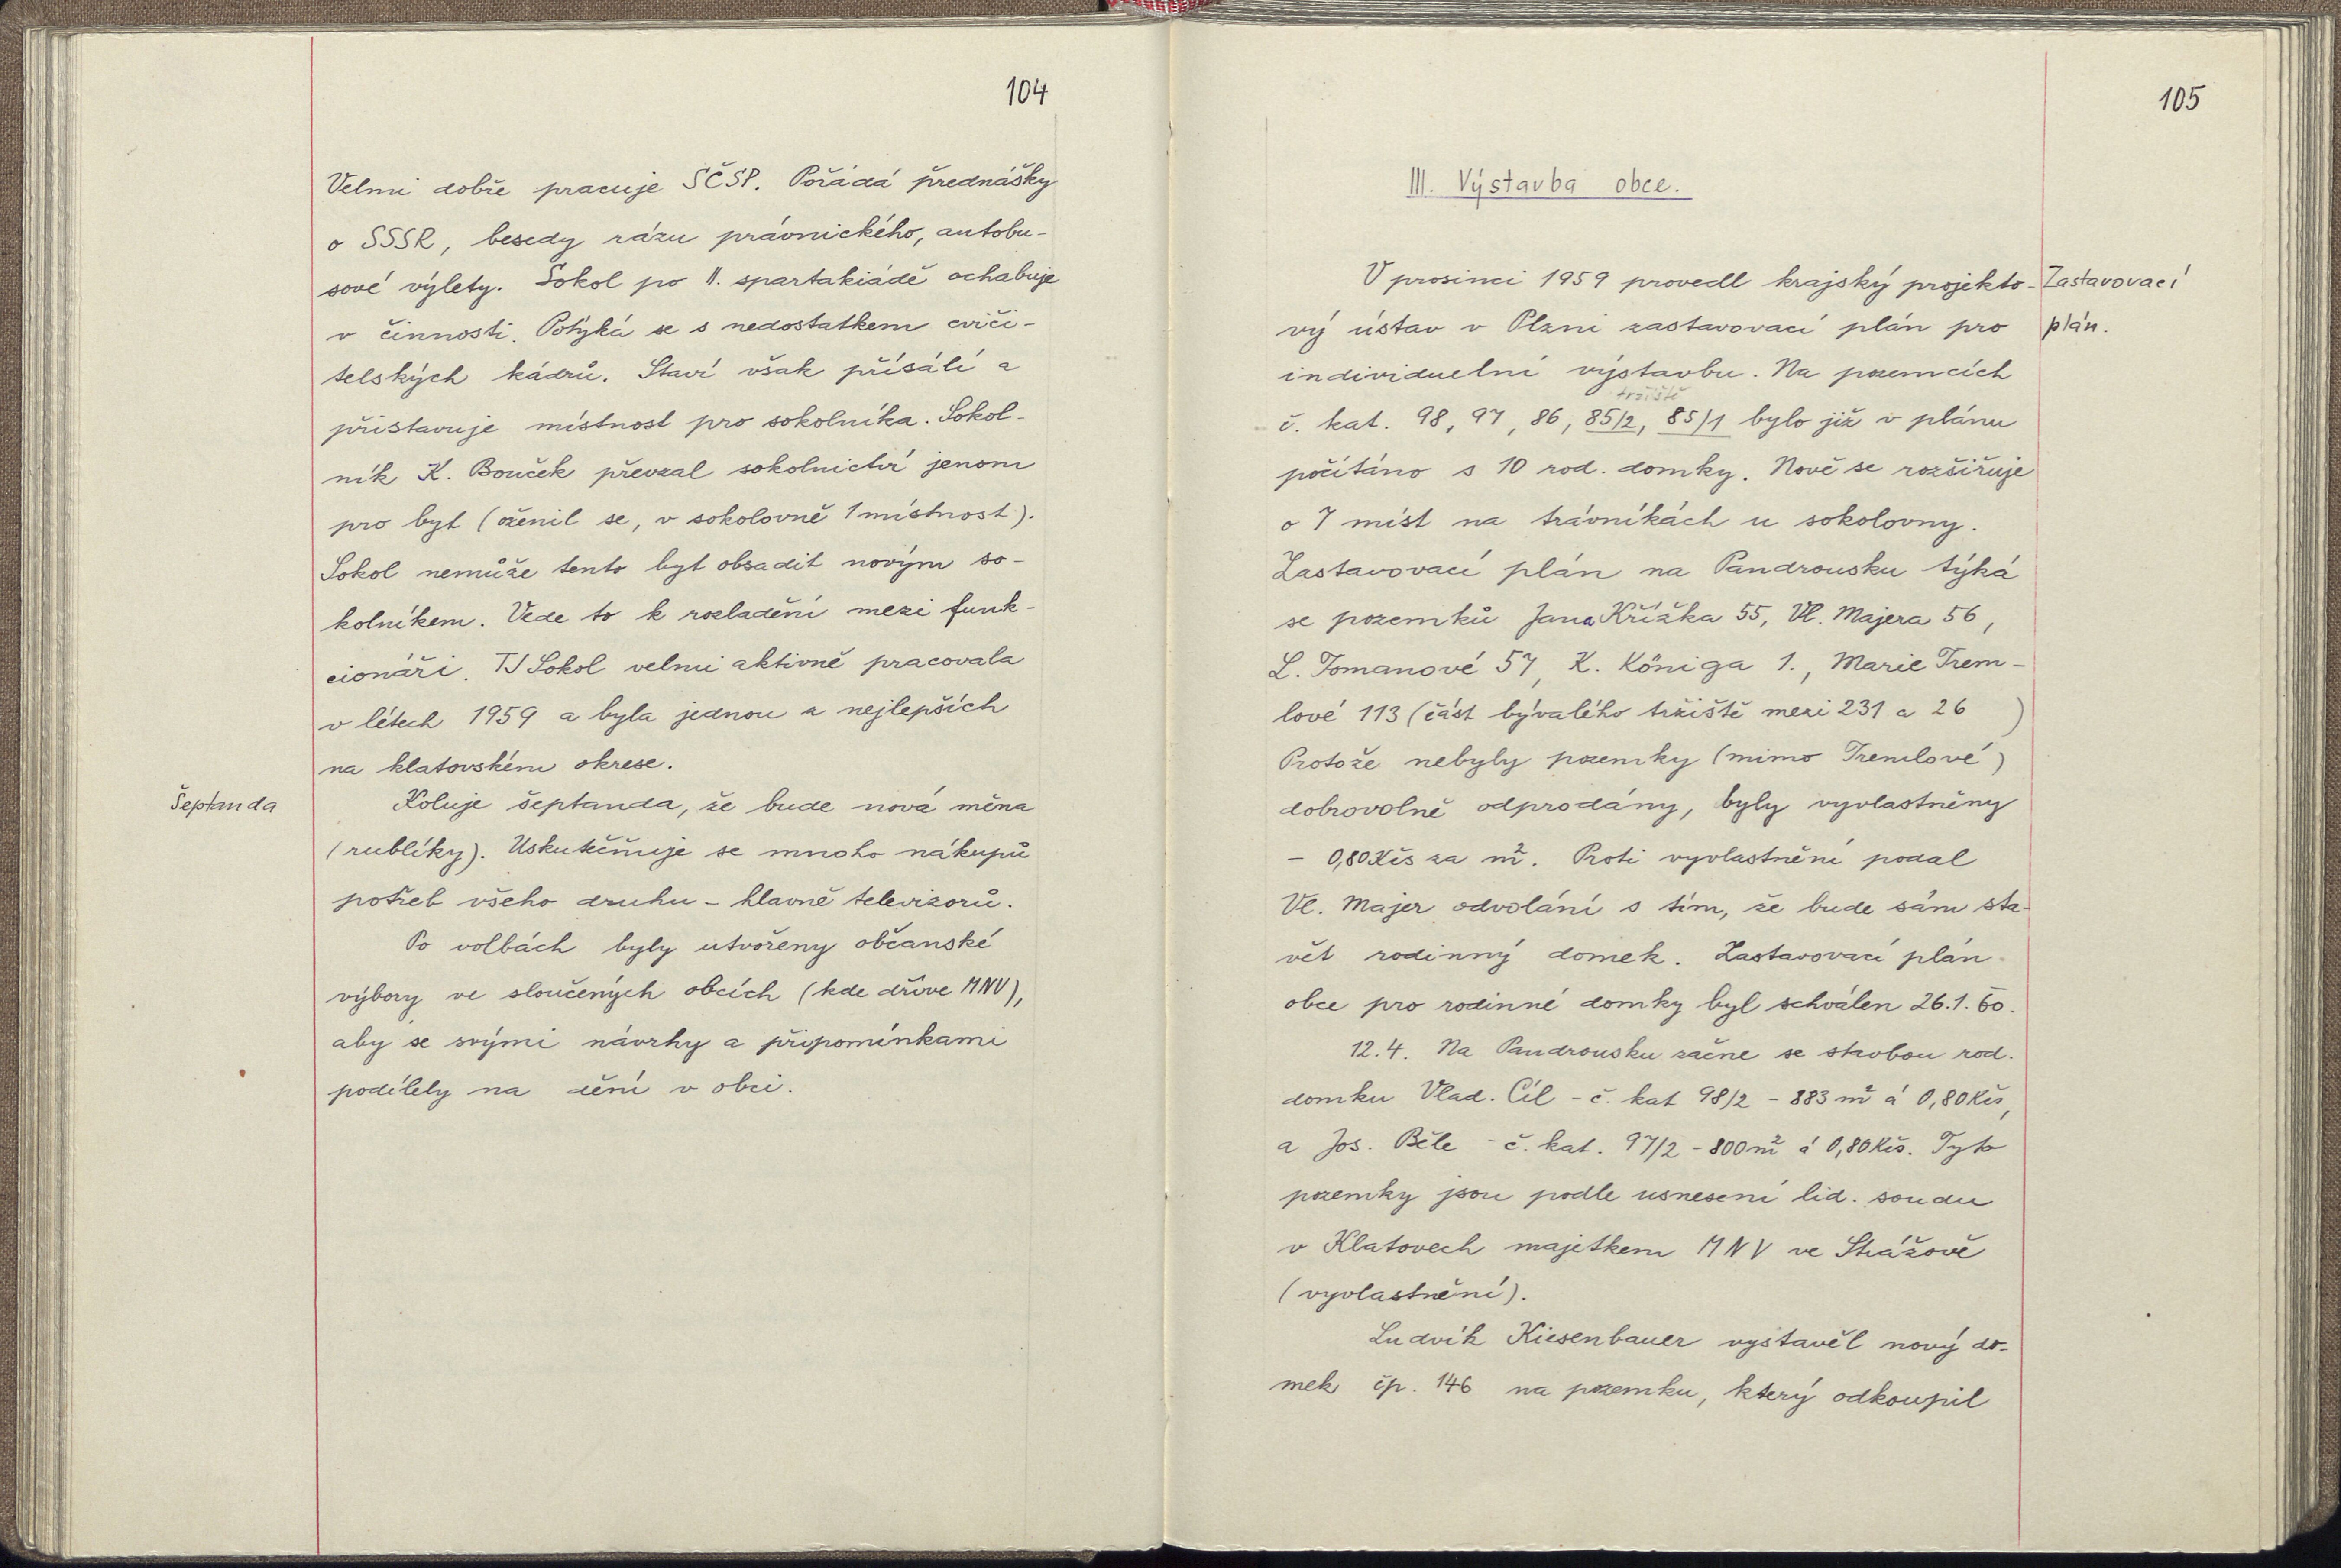 104
Velmi dobře pracuje SČSP. Pořádá přednášky
o SSSR, besedy rázu právnického, autobu-
sové výlety. Sokol po II. spartakiádě ochabuje
v činnosti. Potýká se s nedostatkem cviči-
telských kádrů. Staví však přísálí a
přistavuje místnost pro sokolníka. Sokol-
ník K. Bouček převzal sokolnictví jenom
pro byt (oženil se, v sokolovně 1 místnost).
Sokol nemůže tento byt obsadit novým so-
kolníkem. Vede to k rozladění mezi funk-
cionáři. TJ Sokol velmi aktivně pracovala
v létech 1959 a byla jednou z nejlepších
na klatovském okrese.
Šeptanda
Koluje šeptanda, že bude nová měna
(rublíky). Uskutečňuje se mnoho nákupů
potřeb všeho druhu - hlavně televizorů.
Po volbách byly utvořeny občanské
výbory ve sloučených obcích (kde dříve MNV),
aby se svými návrhy a připomínkami
podílely na dění v obci.
105
III. Výstavba obce.
V prosinci 1959 provedl krajský projekto-
Zastavovací
vý ústav v Plzni zastavovací plán pro
plán.
individuelní výstavbu. Na pozemcích
tržiště
č. kat. 98, 97, 86, 85/2, 85/1 bylo již v plánu
počítáno s 10 rod. domky. Nově se rozšiřuje
o 7 míst na trávníkách u sokolovny.
Zastavovací plán na Pandrousku týká
se pozemků Jana Křížka 55, Vl. Majera 56,
L. Tomanové 57, K. Königa 1., Marie Trem-
lové 113 (část bývalého tržiště mezi 231 a 26 )
Protože nebyly pozemky (mimo Tremlové)
dobrovolně odprodány, byly vyvlastněny
- 0,80 Kčs za m². Proti vyvlastnění podal
Vl. Majer odvolání s tím, že bude sám sta-
vět rodinný domek. Zastavovací plán
obce pro rodinné domky byl schválen 26.1.60.
12.4. Na Pandrousku začne se stavbou rod.
domku Vlad. Cíl - č. kat 98/2 - 883 m² á 0,80 Kčs,
a Jos. Běle - č. kat. 97/2 - 800 m² á 0,80 Kčs. Tyto
pozemky jsou podle usnesení lid. soudu
v Klatovech majetkem MNV ve Strážově
(vyvlastnění).
Ludvík Kiesenbauer vystavěl nový do-
mek čp. 146 na pozemku, který odkoupil